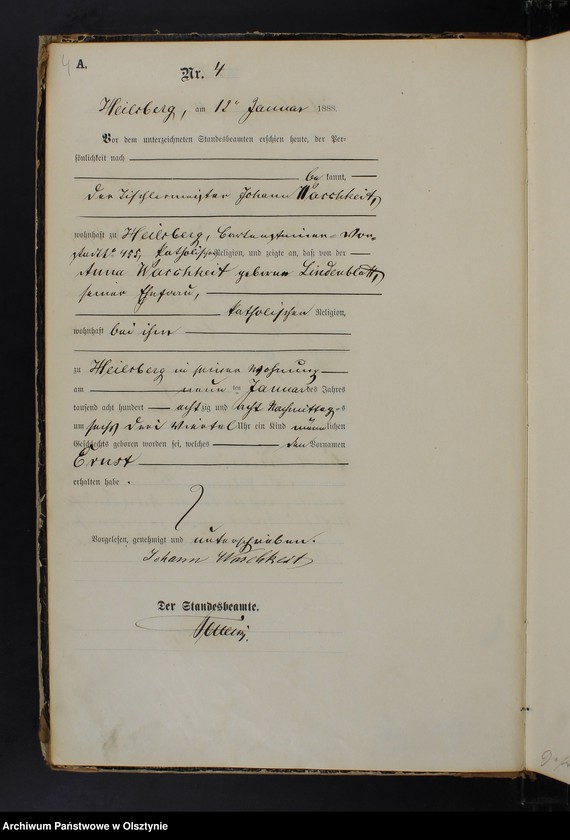 4 A.
Nr. 4
Heilsberg, am 12ten Januar 1888.
Vor dem unterzeichneten Standesbeamten erschien heute, der Per-
sönlichkeit nach
be kannt,
der Tischlermeister Johann Waschkeit,
wohnhaft zu Heilsberg, Bartensteiner-Vor-
stadt No 455, katholischer Religion, und zeigte an, daß von der
Anna Waschkeit geborene Lindenblatt,
seiner Ehefrau,
katholischer Religion,
wohnhaft bei ihm
zu Heilsberg in seiner Wohnung
am neun ten Januar des Jahres
tausend acht hundert achtzig und acht Nachmittags
um sechs drei Viertel Uhr ein Kind männlichen
Geschlechts geboren worden sei, welches den Vornamen
Ernst
erhalten habe.
Vorgelesen, genehmigt und unterschrieben.
Johann Waschkeit
Der Standesbeamte.
Archiwum Państwowe w Olsztynie